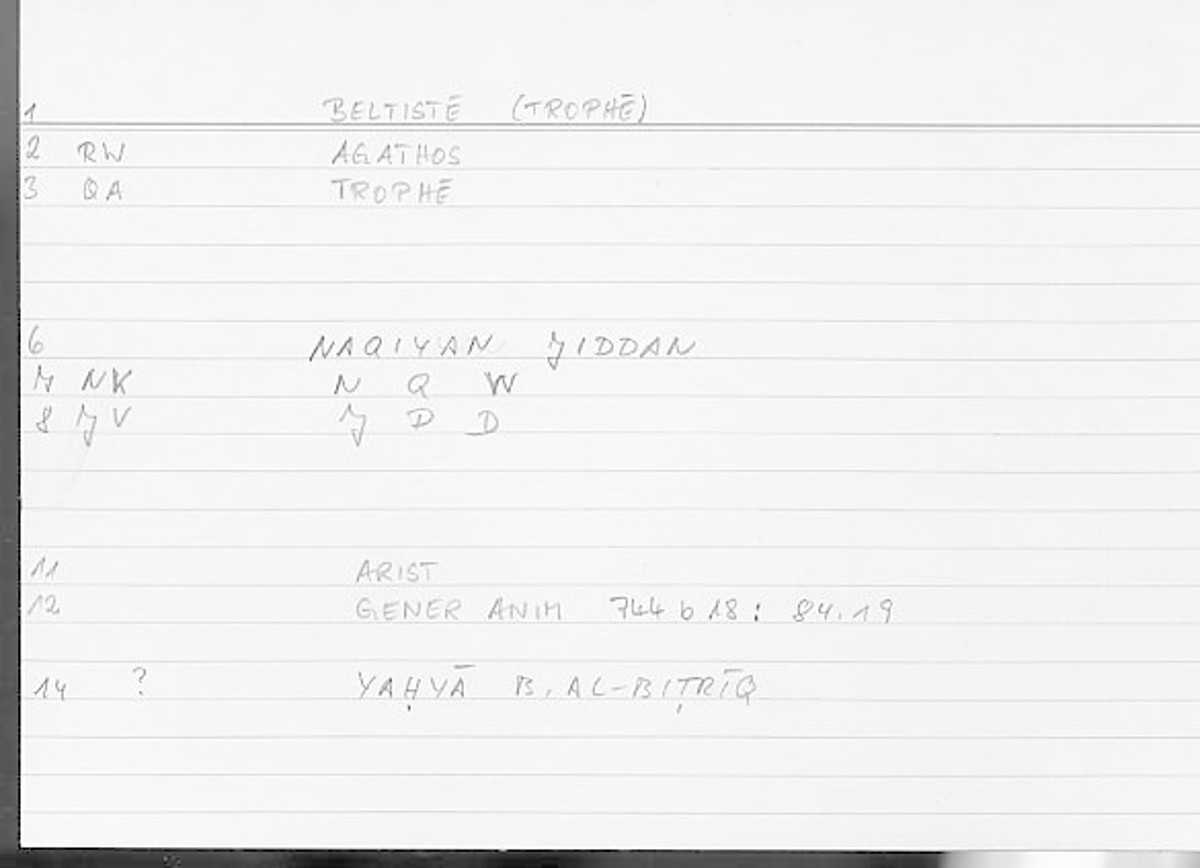 1 BELTISTĒ (TROPHĒ)
2 RW AGATHOS
3 QA TROPHĒ
6 NAQIYAN JIDDAN
7 NK N Q W
8 JV J D D
11 ARIST
12 GENER ANIM 744 b 18 : 84.19
14 ? YAḤYĀ B. AL-BIṬRĪQ